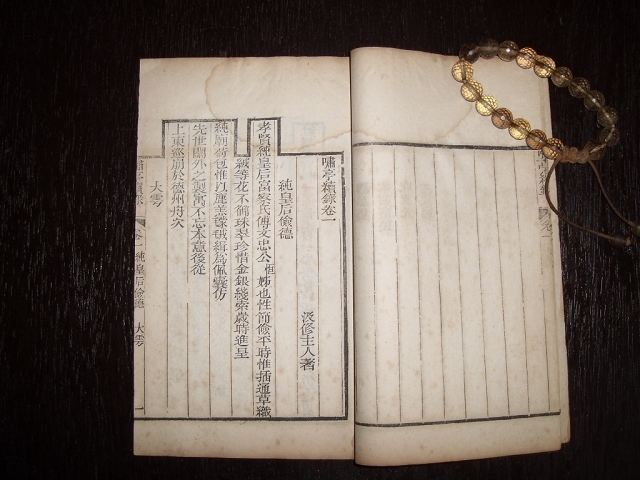 嘯亭續錄卷一
汲修主人著
純皇后儉德
孝賢純皇后富察氏傅文忠公恒姊也性節儉平時惟插通草織
絨等花不御珠翠珍惜金銀綫索歲時進呈
純廟荷包惟以鹿羔毧緝為佩囊仿
先世關外之製寓不忘本意後從
上東巡崩於德州舟次
大雩
卷一 純皇后儉德 大雩 一